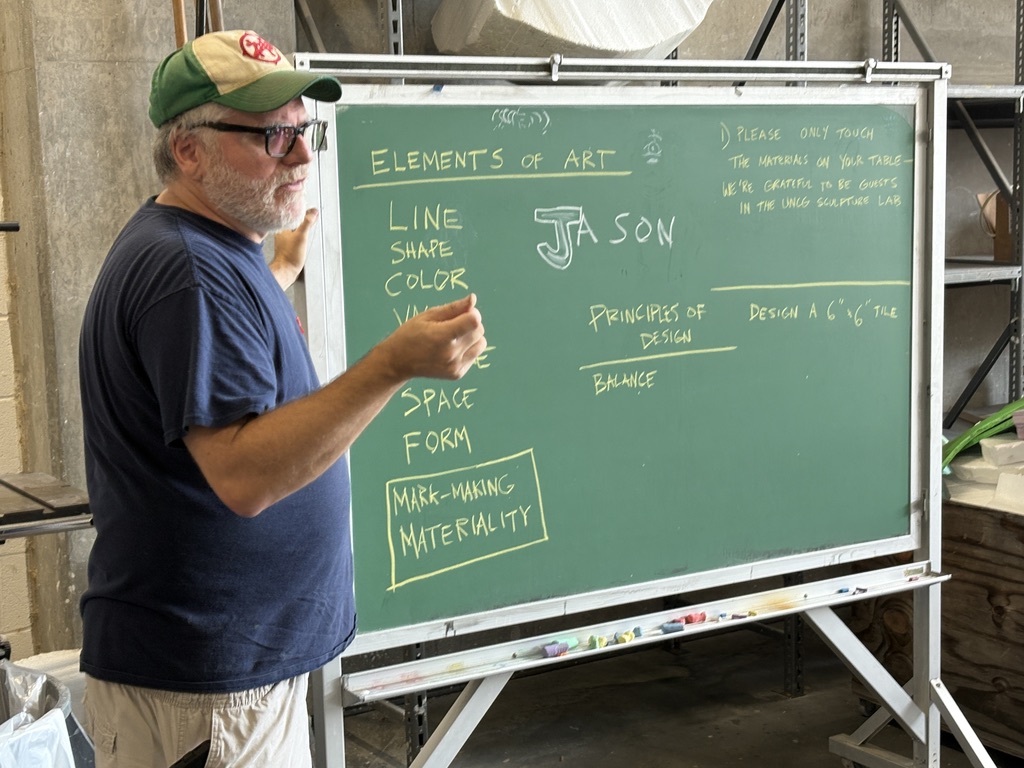 ELEMENTS OF ART
LINE
SHAPE
COLOR
SPACE
FORM
MARK-MAKING
MATERIALITY
JASON
PRINCIPLES OF
DESIGN
BALANCE
1) PLEASE ONLY TOUCH
THE MATERIALS ON YOUR TABLE—
WE'RE GRATEFUL TO BE GUESTS
IN THE UNCG SCULPTURE LAB
DESIGN A 6" x 6" TILE